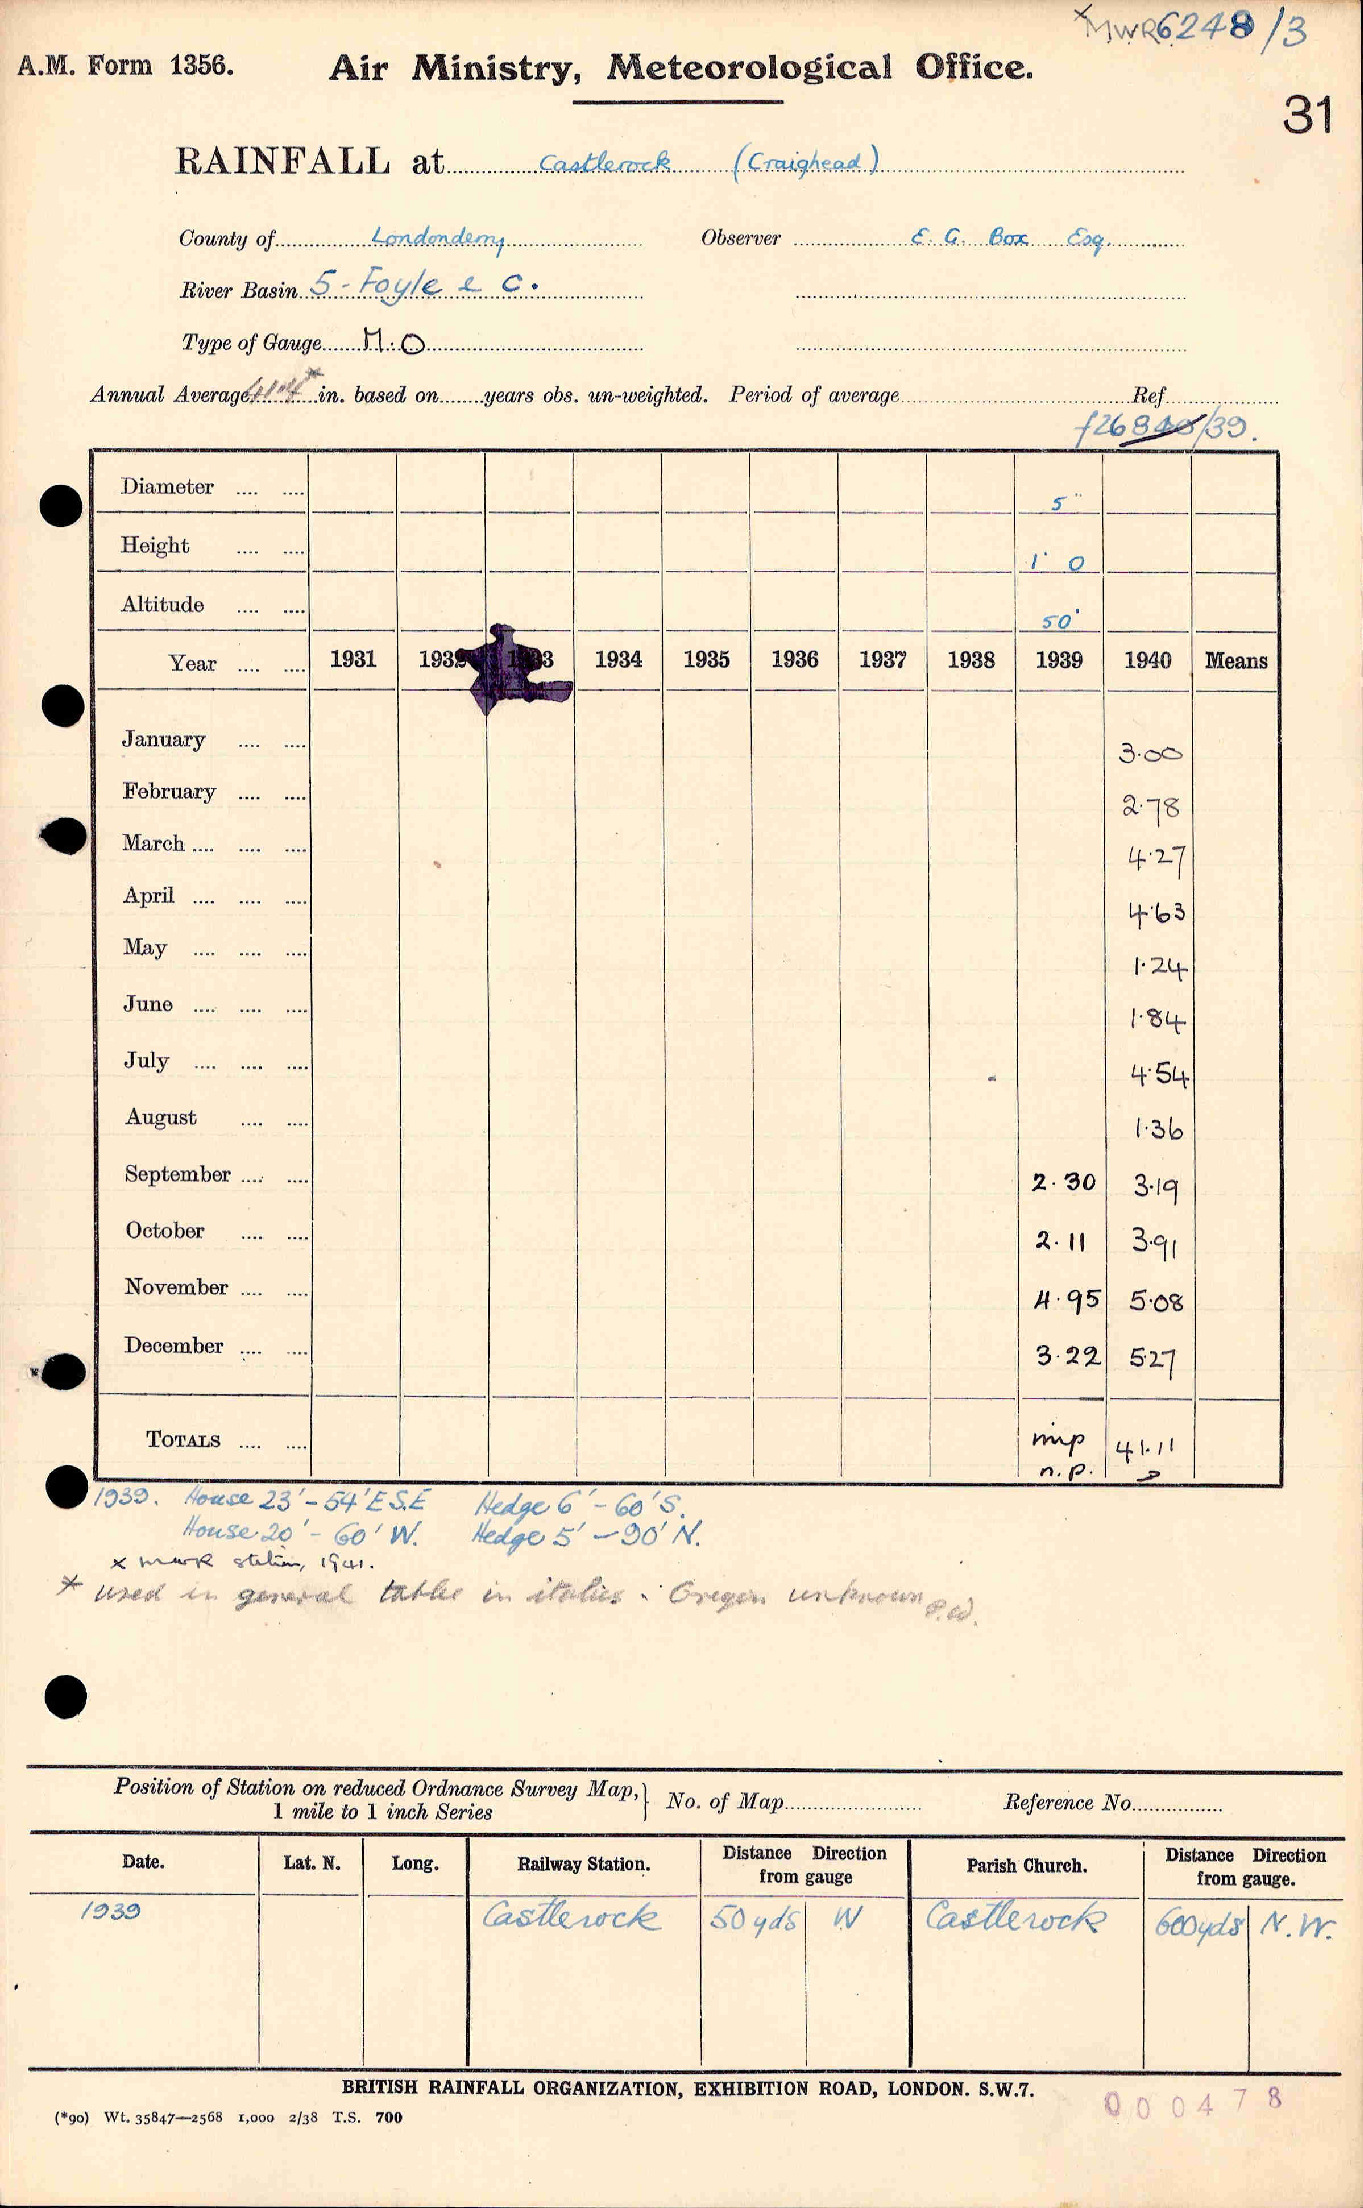 MWR6248/3
A.M. Form 1356. Air Ministry, Meteorological Office.
31
RAINFALL at Castlerock (Craighead)
County of Londonderry Observer E. G. Box Esq.
River Basin 5 - Foyle & C.
Type of Gauge M.O
Annual Average in. based on years obs. un-weighted. Period of average Ref
/39.
Diameter 5"
Height 1' 0
Altitude 50'
Year 1931 1932 1933 1934 1935 1936 1937 1938 1939 1940 Means
January 3.00
February 2.78
March 4.27
April 4.63
May 1.24
June 1.84
July 4.54
August 1.36
September 2.30 3.19
October 2.11 3.91
November 4.95 5.08
December 3.22 5.27
TOTALS 41.11
n.p.
1939. House 23' - 54' E S.E Hedge 6' - 60' S.
House 20' - 60' W. Hedge 5' - 90' N.
x MWR station, 1941.
* used in general table in italics. unknown
Position of Station on reduced Ordnance Survey Map,} No. of Map Reference No.
1 mile to 1 inch Series
Date. Lat. N. Long. Railway Station. Distance from gauge Direction Parish Church. Distance from gauge. Direction
1939 Castlerock 50 yds W Castlerock 600 yds N.W.
BRITISH RAINFALL ORGANIZATION, EXHIBITION ROAD, LONDON. S.W.7.
(*90) Wt. 35847—2568 1,000 2/38 T.S. 700
000478